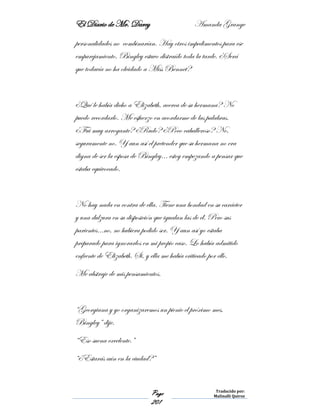 El Diario de Mr. Darcy Amanda Grange
personalidades no combinarían. Hay otros impedimentos para ese
emparejamiento. Bingley estuvo distraído toda la tarde. ¿Será
que todavía no ha olvidado a Miss Bennet?
¿Qué le había dicho a Elizabeth, acerca de su hermana? No
puedo recordarlo. Me esfuerzo en acordarme de las palabras.
¿Fui muy arrogante? ¿Rudo? ¿Poco caballeroso? No,
seguramente no. Y aun así el pretender que su hermana no era
digna de ser la esposa de Bingley... estoy empezando a pensar que
estaba equivocado.
No hay nada en contra de ella. Tiene una bondad en su carácter
y una dulzura en su disposición que igualan las de él. Pero sus
parientes...no, no hubiera podido ser. Y aun así yo estaba
preparado para ignorarlos en mi propio caso. Lo había admitido
enfrente de Elizabeth. Sí, y ella me había criticado por ello.
Me abstraje de mis pensamientos.
"Georgiana y yo organizaremos un picnic el próximo mes,
Bingley" dije.
"Eso suena excelente."
"¿Estarás aún en la ciudad?"
Page
201
Traducido por:
Malinalli Quiroz